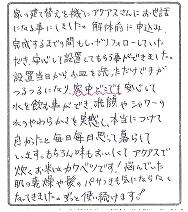 家の建て替えを機にアクアスさんにお世話
になる事にしました。解体前に申込み
完成するまで間もしっかりフォローしていた
だき、安心して設置してもらう事ができました。
設置当日からお皿を洗っただけですが
つるつるになり、家中どこでも安心して
水を飲む事ができ、洗顔やシャワーの
水のやわらかくを実感し、本当につけて
良かったと毎日毎日思って暮らして
います。もちろん味もおいしくてアクアスで
炊くお米もカクベツです！悩んでいた
肌の乾燥や髪のパサつきも気にならなく
なってきました。ずっと使い続けます。